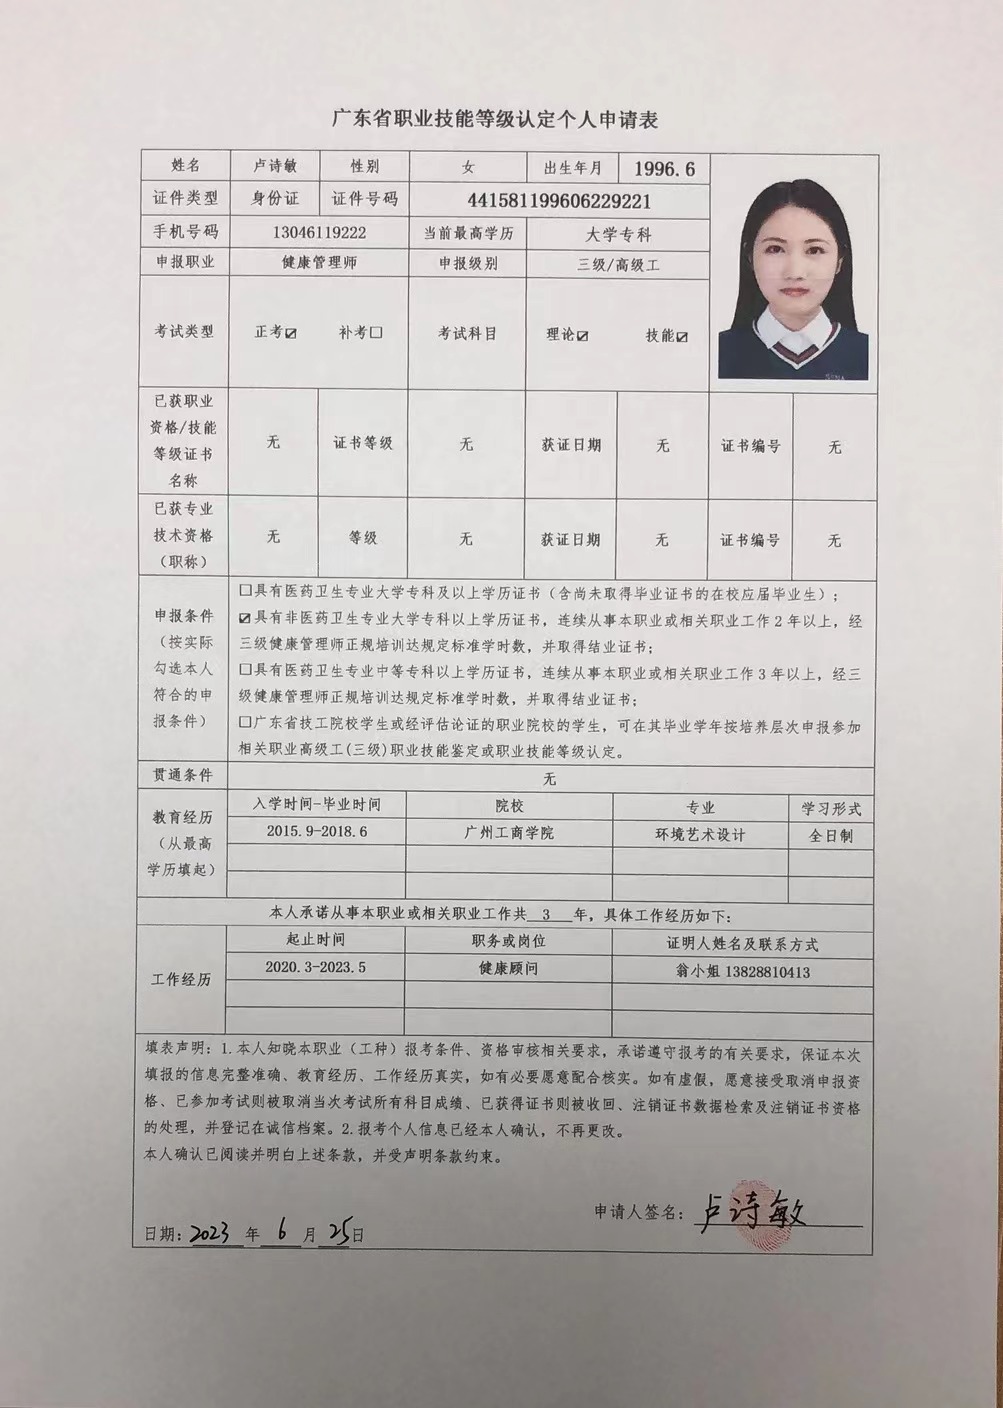 广东省职业技能等级认定个人申请表
姓名 卢诗敏 性别 女 出生年月 1996.6
证件类型 身份证 证件号码 441581199606229221
手机号码 13046119222 当前最高学历 大学专科
申报职业 健康管理师 申报级别 三级/高级工
考试类型 正考☑ 补考☐ 考试科目 理论☑ 技能☑
已获职业
资格/技能
等级证书
名称
无 证书等级 无 获证日期 无 证书编号 无
已获专业
技术资格
（职称）
无 等级 无 获证日期 无 证书编号 无
申报条件
（按实际
勾选本人
符合的申
报条件）
☐具有医药卫生专业大学专科及以上学历证书（含尚未取得毕业证书的在校应届毕业生）；
☑具有非医药卫生专业大学专科以上学历证书，连续从事本职业或相关职业工作2年以上，经
三级健康管理师正规培训达规定标准学时数，并取得结业证书；
☐具有医药卫生专业中等专科以上学历证书，连续从事本职业或相关职业工作3年以上，经三
级健康管理师正规培训达规定标准学时数，并取得结业证书；
☐广东省技工院校学生或经评估论证的职业院校的学生，可在其毕业学年按培养层次申报参加
相关职业高级工(三级)职业技能鉴定或职业技能等级认定。
贯通条件 无
教育经历
（从最高
学历填起）
入学时间-毕业时间 院校 专业 学习形式
2015.9-2018.6 广州工商学院 环境艺术设计 全日制
本人承诺从事本职业或相关职业工作共 3 年，具体工作经历如下：
工作经历
起止时间 职务或岗位 证明人姓名及联系方式
2020.3-2023.5 健康顾问 翁小姐 13828810413
填表声明：1.本人知晓本职业（工种）报考条件、资格审核相关要求，承诺遵守报考的有关要求，保证本次
填报的信息完整准确、教育经历、工作经历真实，如有必要愿意配合核实。如有虚假，愿意接受取消申报资
格、已参加考试则被取消当次考试所有科目成绩、已获得证书则被收回、注销证书数据检索及注销证书资格
的处理，并登记在诚信档案。2.报考个人信息已经本人确认，不再更改。
本人确认已阅读并明白上述条款，并受声明条款约束。
申请人签名：卢诗敏
日期：2023 年 6 月 25日